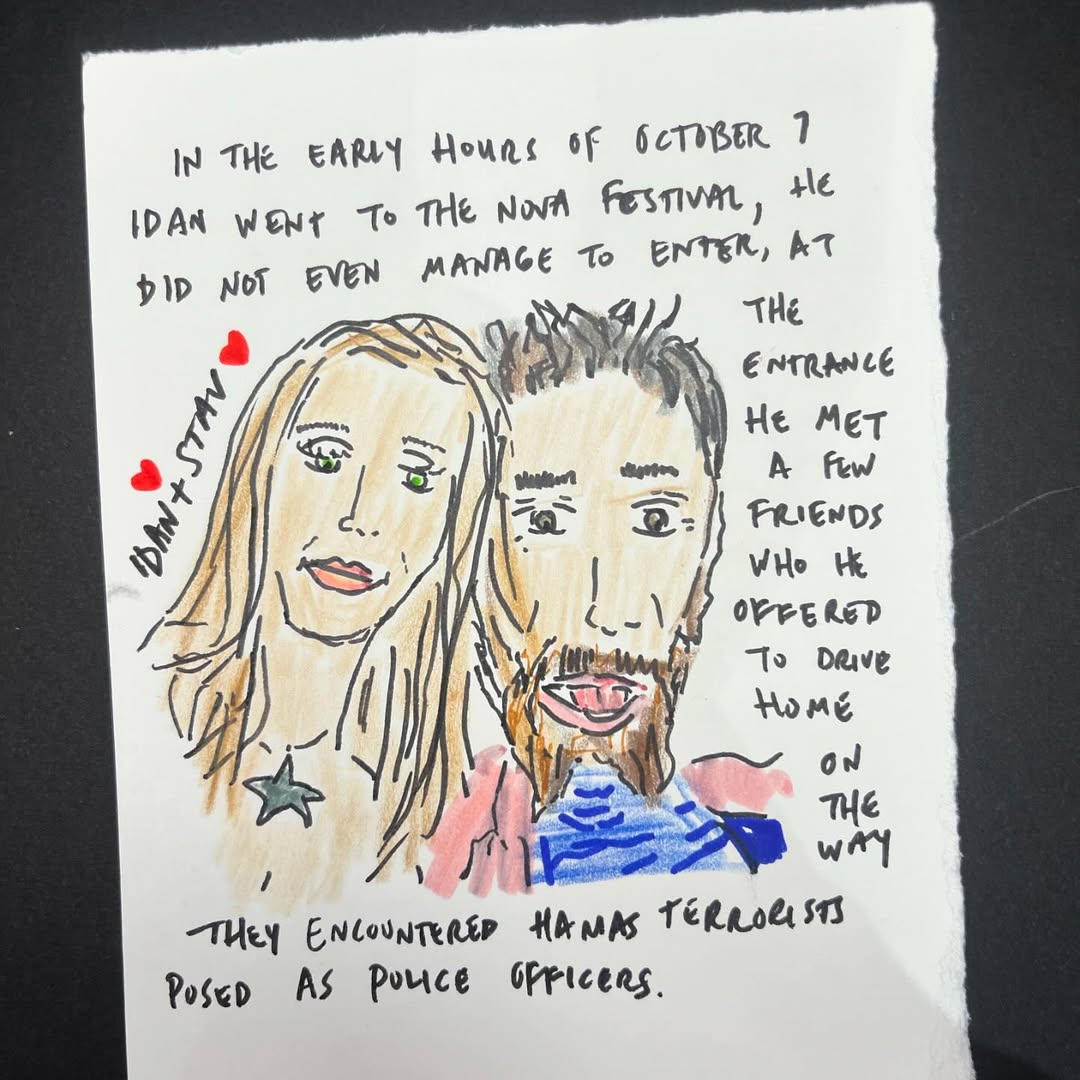 IN THE EARLY HOURS OF OCTOBER 7
IDAN WENT TO THE NOVA FESTIVAL, HE
DID NOT EVEN MANAGE TO ENTER, AT
THE
ENTRANCE
HE MET
A FEW
FRIENDS
WHO HE
OFFERED
TO DRIVE
HOME
ON
THE
WAY
THEY ENCOUNTERED HAMAS TERRORISTS
POSED AS POLICE OFFICERS.
IDAN + STAV